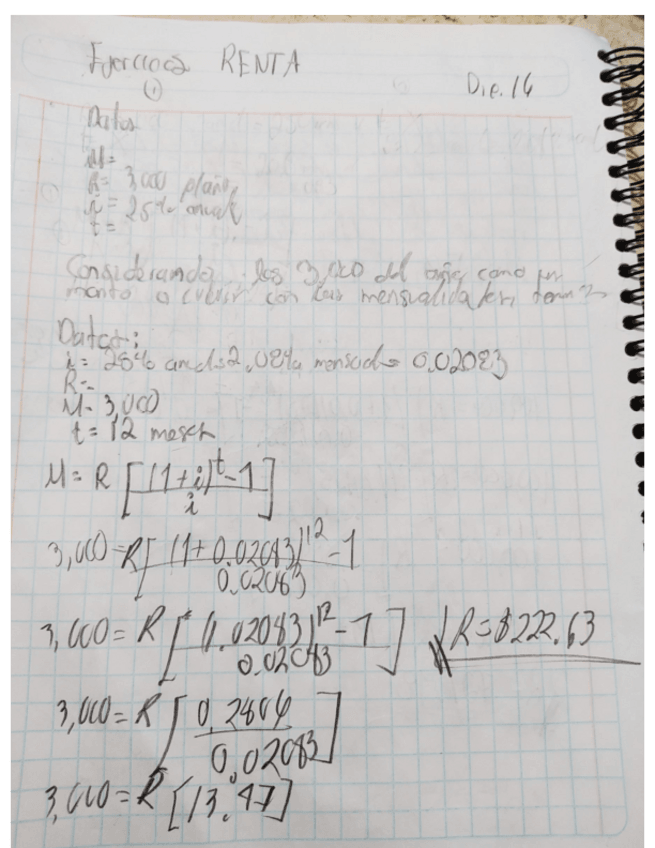 Ejercicios RENTA
(1)
Dic. 14
Datos
M=
R= 3,000 p/año
i = 25% anual
t =
Considerando los 3,000 del año como un
monto a cubrir con las mensualidades,
Datos:
i= 25% anual 2.08% mensual = 0.02083
R=
M= 3,000
t= 12 meses
M= R [(1+i)^t-1 / i]
3,000 = R[(1+0.02083)^12 -1 / 0.02083
3,000 = R [(1.02083)^12 -1 / 0.02083] R=$222.63
3,000 = R [0.2806 / 0.02083]
3,000 = R [13.47]